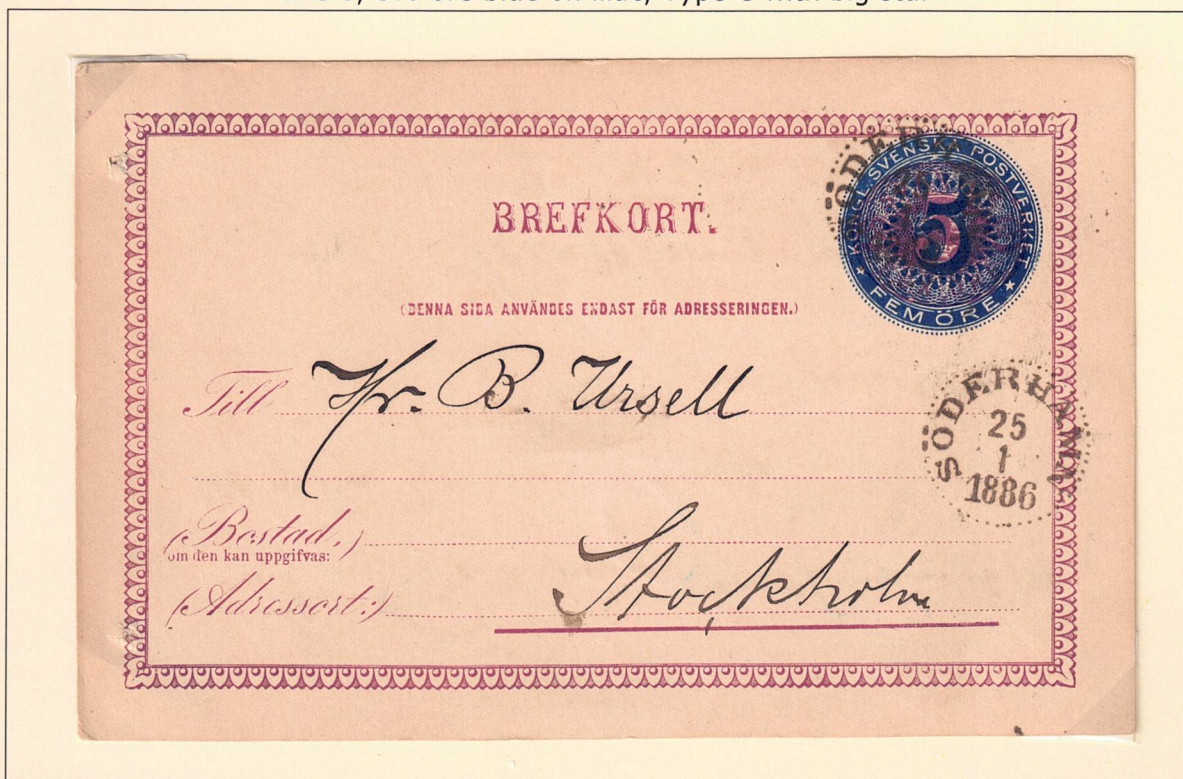 BREFKORT.
KONGL. SVENSKA POSTVERKET
5
FEM ÖRE
(DENNA SIDA ANVÄNDES ENDAST FÖR ADRESSERINGEN.)
Till Hr. B. Ursell
SÖDERHAMN
25
1
1886
(Bostad,)
om den kan uppgifvas:
(Adressort:) Stockholm